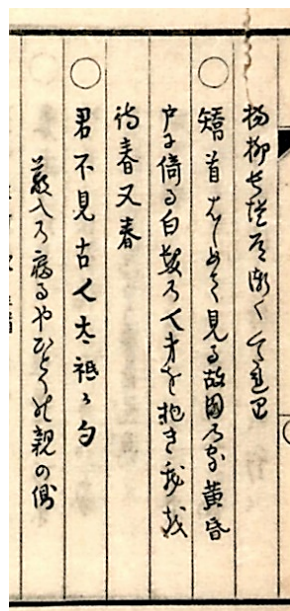 楊柳長堤道漸くくれたり
○矯首はしめて見る故園の家黄昏
戸に倚る白髪の人弟を抱き我を
待春又春
○君不見古人太祗か句
薮入の寝るやひとりの親の側